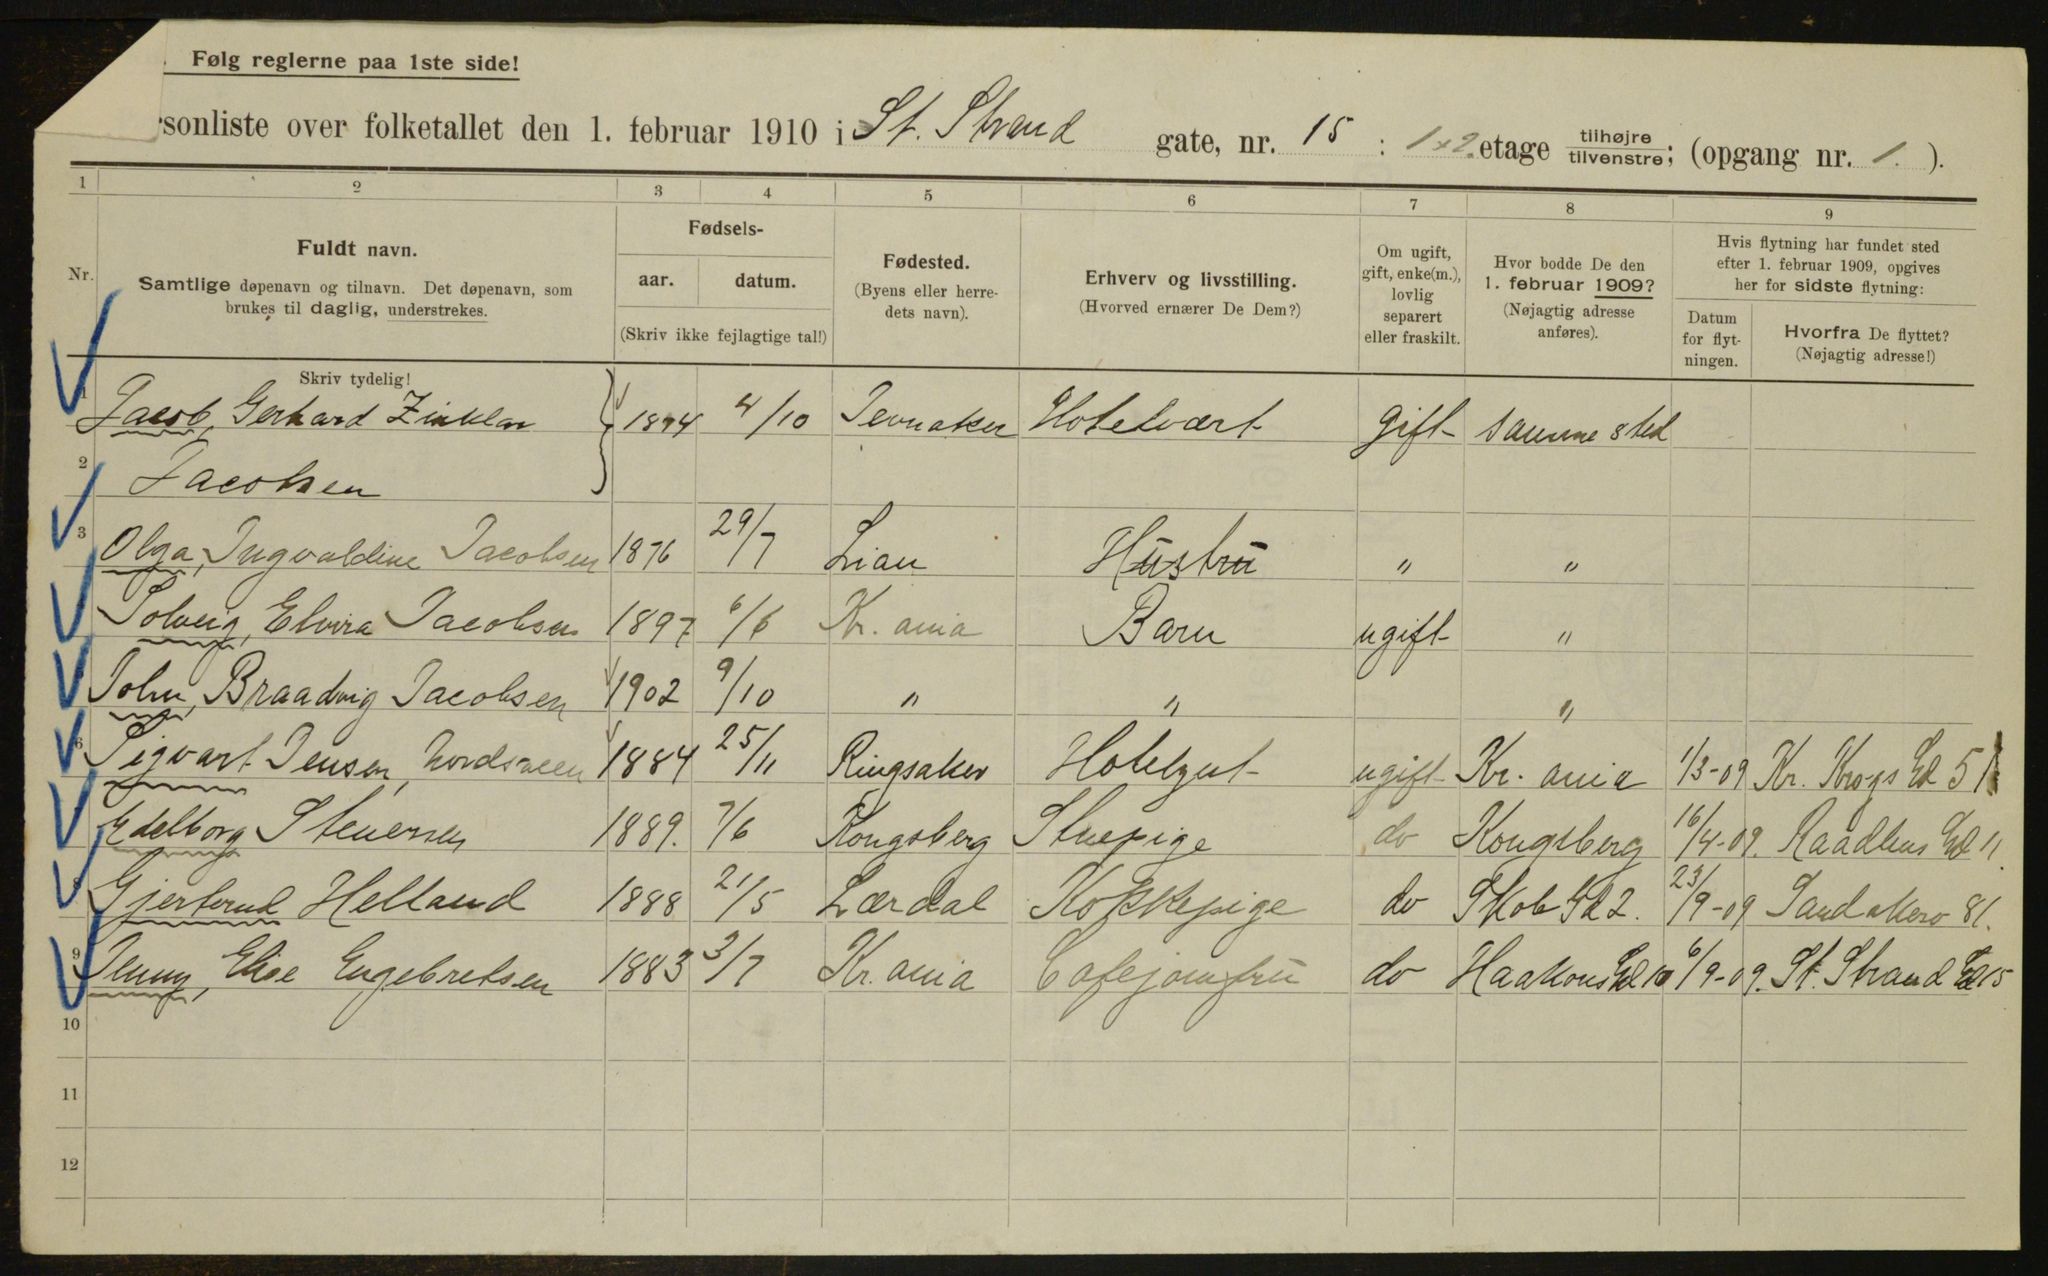 Følg reglerne paa 1ste side!
rsonliste over folketallet den 1. februar 1910 i St. Strand gate, nr. 15 : 1 x 2. etage tilhøjre tilvenstre; (opgang nr. 1. ).
1 2 3 4 5 6 7 8 9
Nr.
Fuldt navn.
Samtlige døpenavn og tilnavn. Det døpenavn, som
brukes til daglig, understrekes.
Fødsels-
aar. datum.
(Skriv ikke fejlagtige tal!)
Fødested.
(Byens eller herre-
dets navn).
Erhverv og livsstilling.
(Hvorved ernærer De Dem?)
Om ugift,
gift, enke(m.),
lovlig
separert
eller fraskilt.
Hvor bodde De den
1. februar 1909?
(Nøjagtig adresse
anføres).
Hvis flytning har fundet sted
efter 1. februar 1909, opgives
her for sidste flytning:
Datum
for flyt-
ningen.
Hvorfra De flyttet?
(Nøjagtig adresse!)
Skriv tydelig!
1 Jacob, Gerhard 1874 4/10 Jevnaker Hotelvært gift samme sted
2 Jacobsen
3 Olga, Ingvaldine Jacobsen 1876 29/7 Lian Hustru " "
Solveig, Elvira Jacobsen 1897 6/6 Kr. ania Barn ugift "
John, Braadvig Jacobsen 1902 9/10 " " "
6 Sigvart Jensen, Nordsveen 1884 25/11 Ringsaker Hotelgut ugift Kr. ania 1/3-09 Kr. Krogs Gd 51
Edelborg Stenersen 1889. 7/6 Kongsberg Stuepige do Kongsberg 16/4-09. Raadhus Gd 11.
8 Gjertrud Helland 1888 21/5 Lærdal Kokkepige do Skob Gd 2. 23/9-09 Sandakerv 81.
9 Jenny, Elise Engebretsen 1883 3/7 Kr. ania Cafejomfru do Haakons Gd 10 6/9-09. St. Strand Gd 15
10
11
12